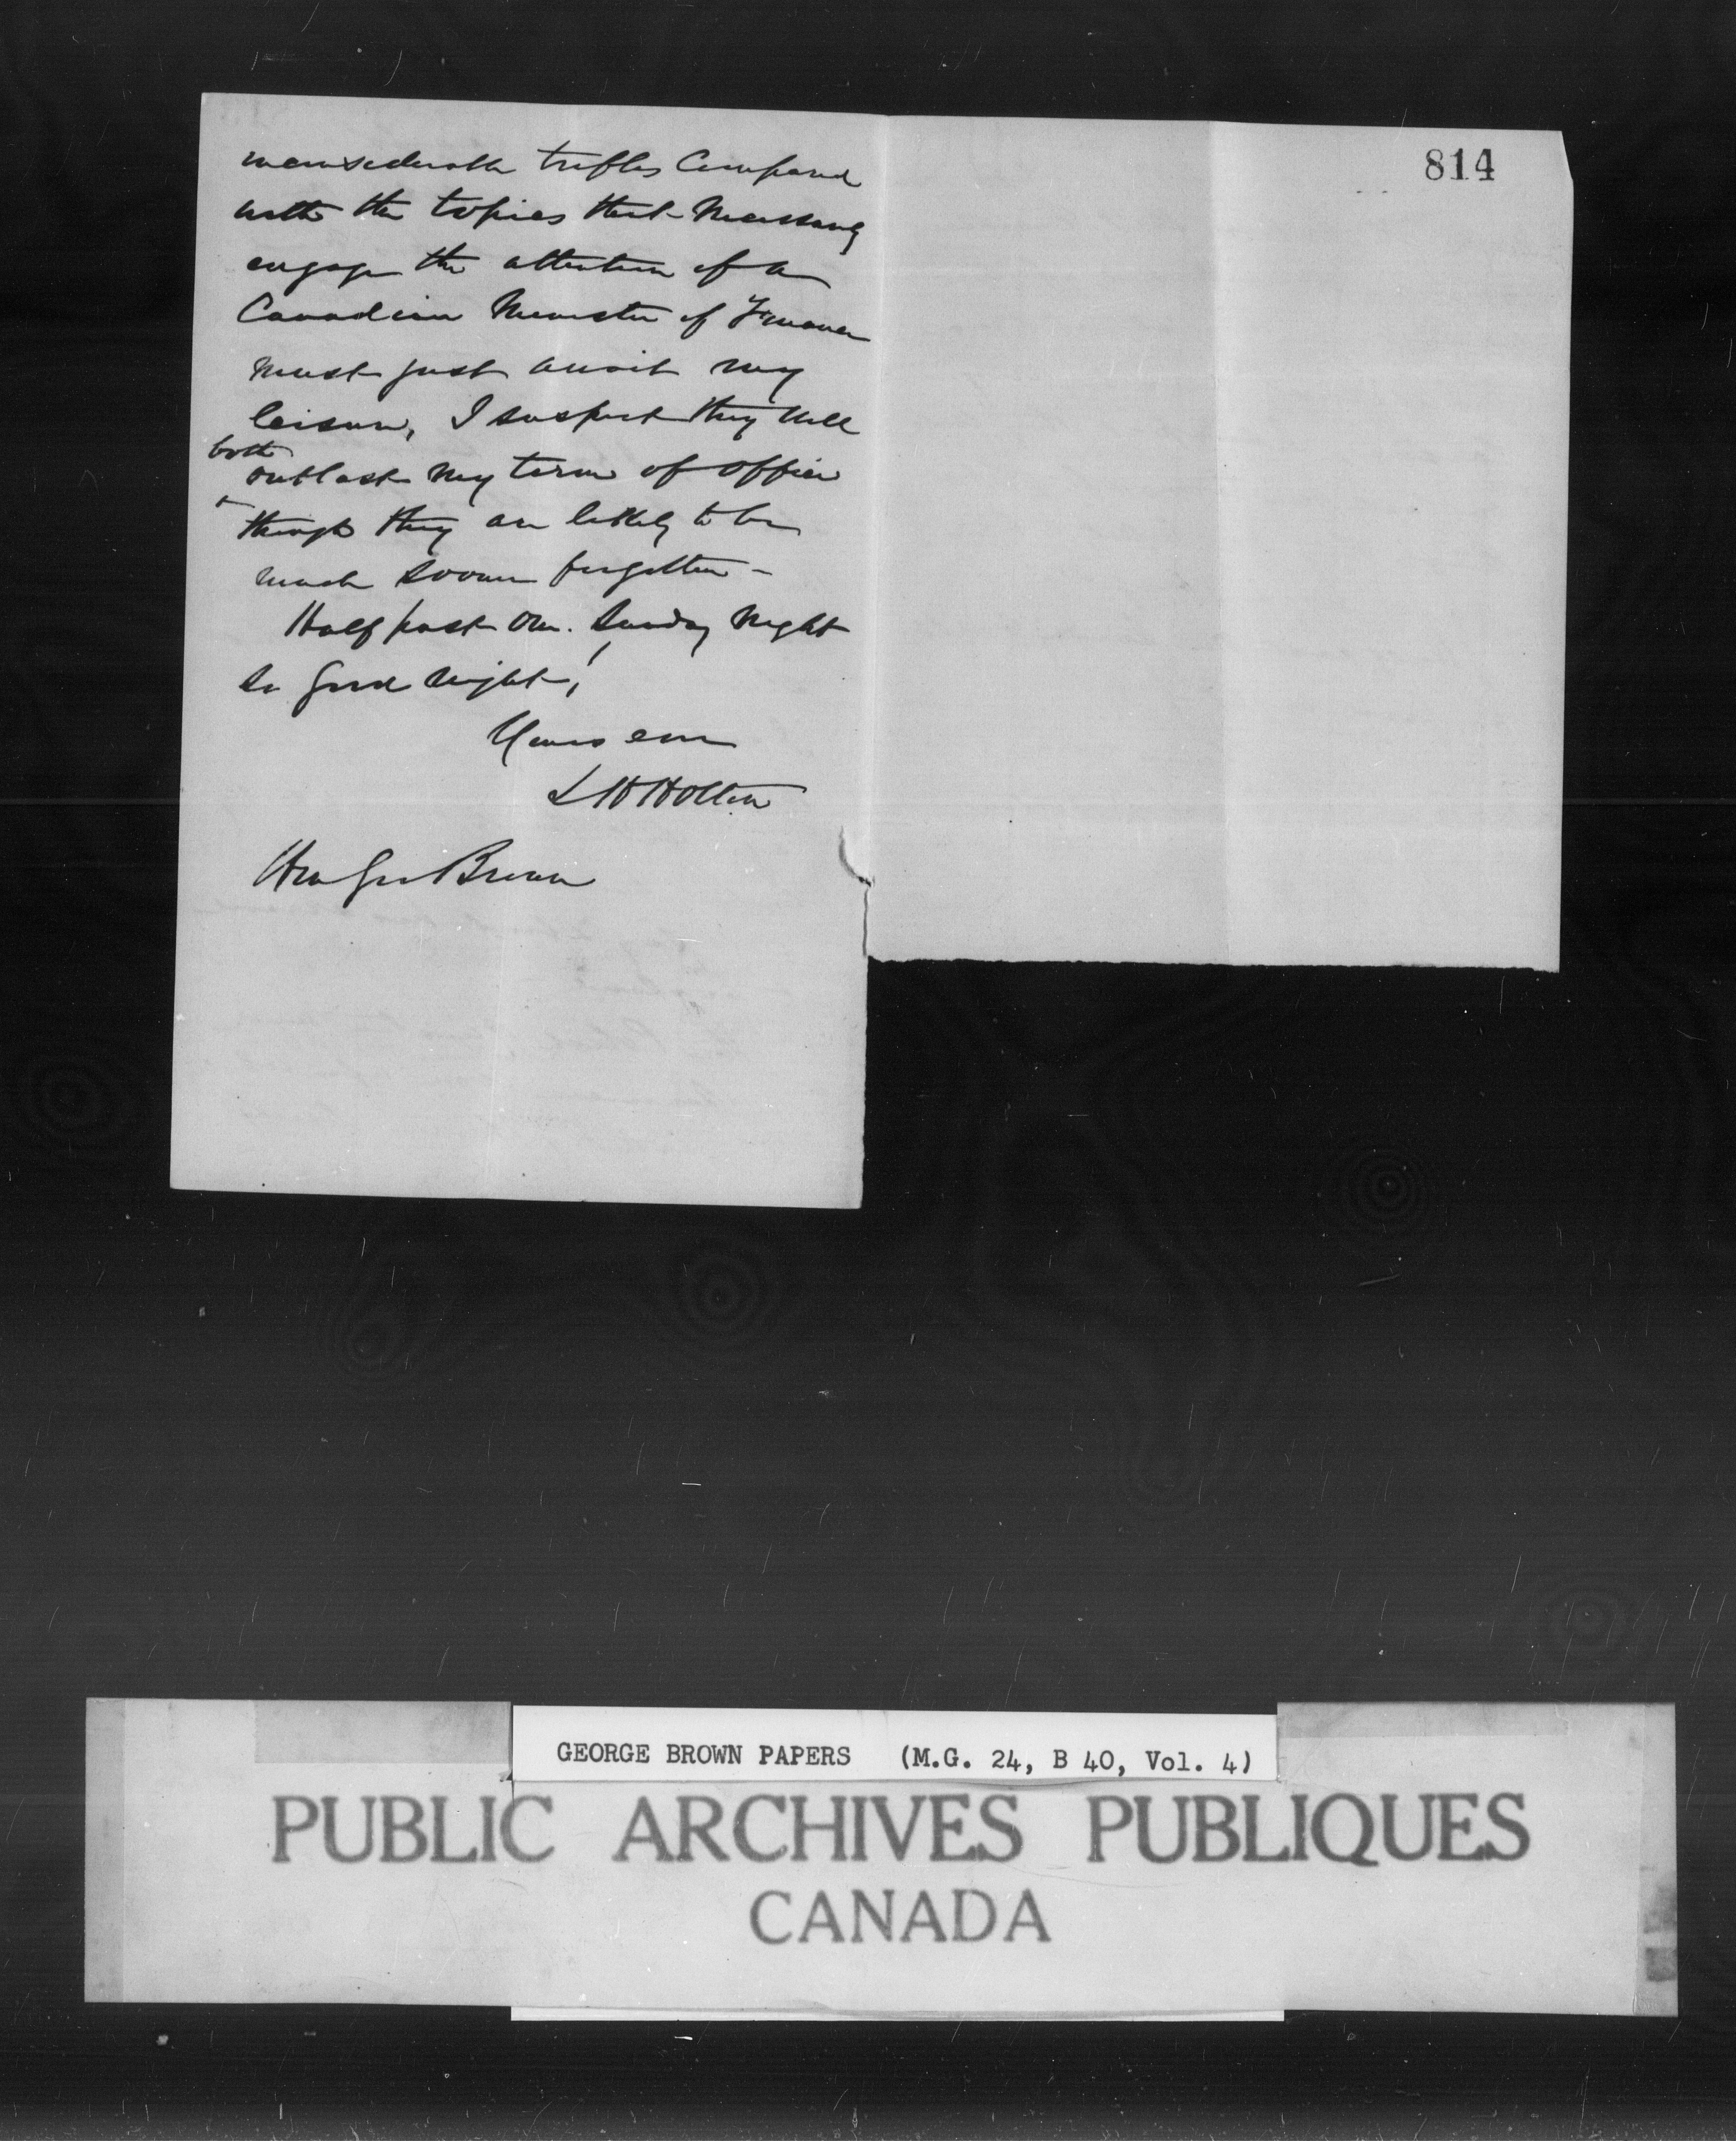 inconsiderable trifles compared
with the topics that necessarily
engage the attention of a
Canadian Minister of Finance
must just await my
leisure, I suspect they will
both
outlast my term of office
though they are likely to be
much sooner forgotten -
Half past one. Sunday night
so good night!
Yours ever
L H Holton
Hon Geo Brown
814
GEORGE BROWN PAPERS (M.G. 24, B 40, Vol. 4)
PUBLIC ARCHIVES PUBLIQUES
CANADA